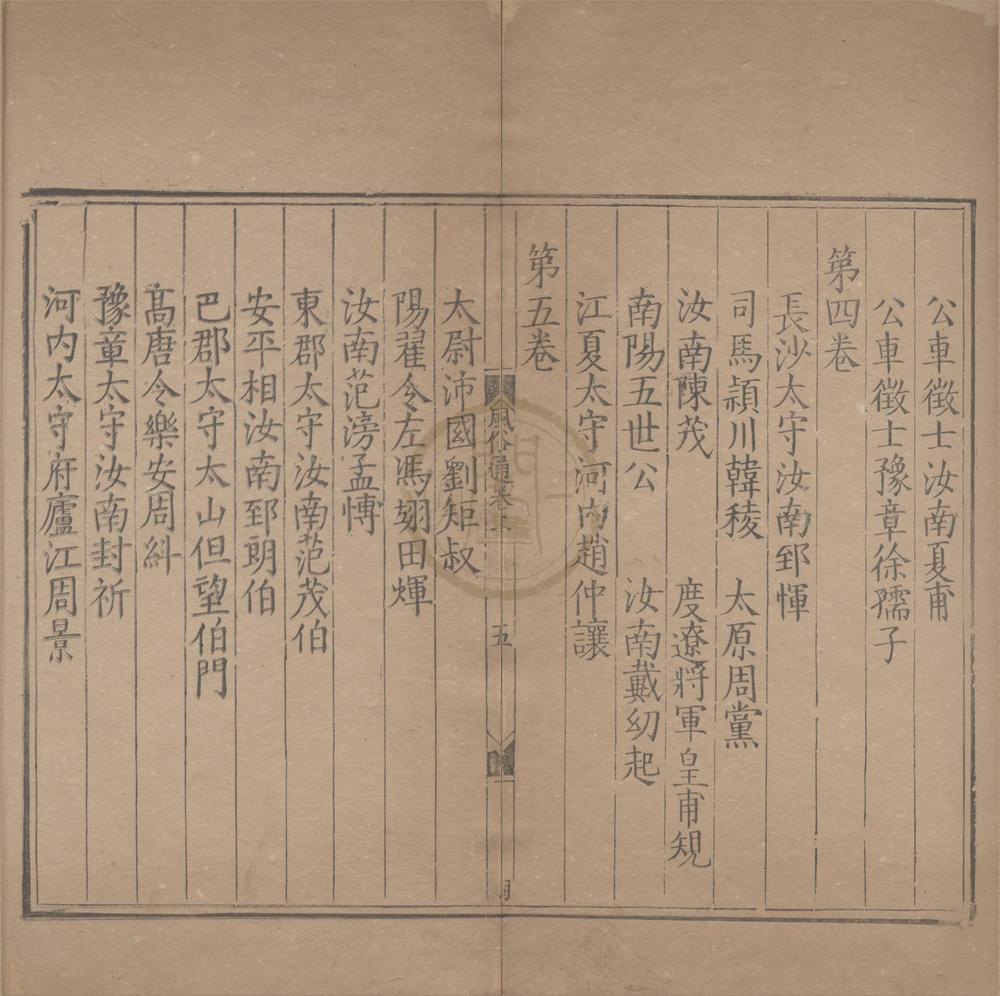 公車徵士汝南夏甫
公車徵士豫章徐孺子
第四卷
長沙太守汝南郅惲
司馬潁川韓稜　太原周黨
汝南陳茂　度遼將軍皇甫規
南陽五世公　汝南戴幼起
江夏太守河內趙仲讓
第五卷
風俗通卷　五
太尉沛國劉矩叔
陽翟令左馮翊田煇
汝南范滂孟慱
東郡太守汝南范茂伯
安平相汝南郅朗伯
巴郡太守太山但望伯門
高唐令樂安周糾
豫章太守汝南封祈
河内太守府廬江周景